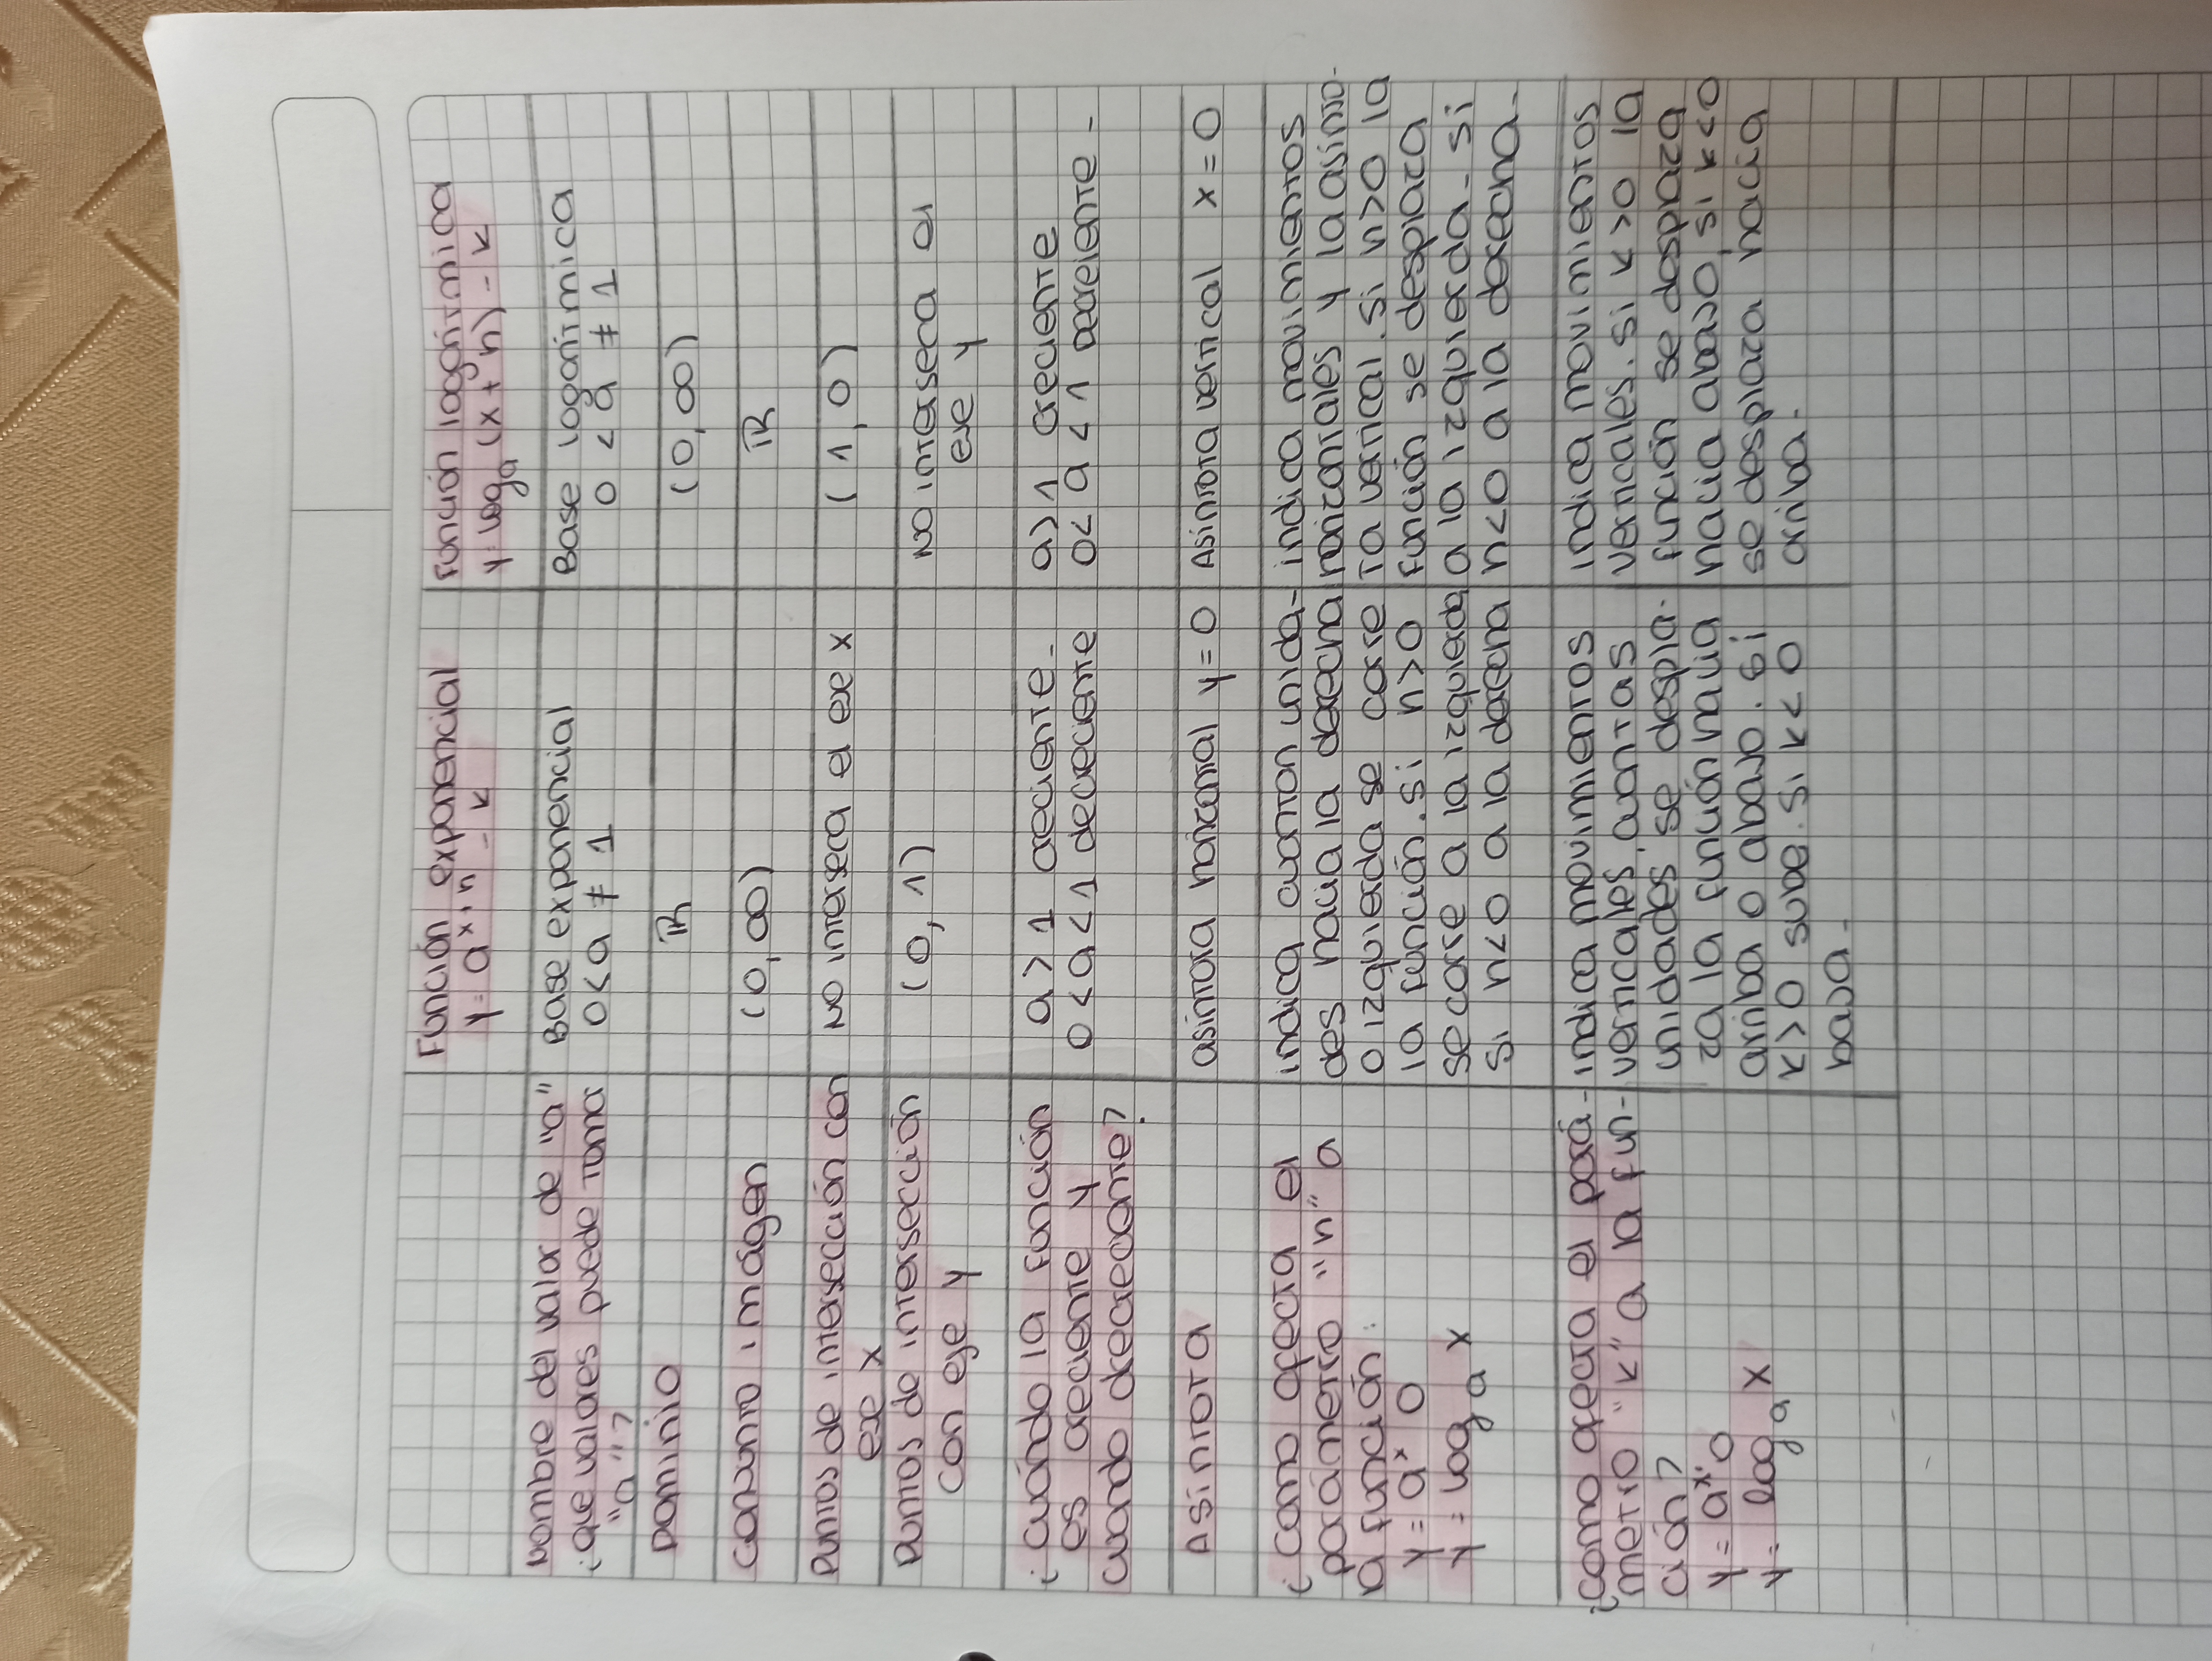 Función exponencial
y = a^x+h - k
Función logarítmica
y = log_a (x + h) - k
Nombre del valor de "a"
¿que valores puede toma
"a"?
Base exponencial
0 < a ≠ 1
Base logarítmica
0 < a ≠ 1
Dominio
ℝ
(0, ∞)
conjunto imágen
(0, ∞)
ℝ
Puntos de intersección con
eje x
No interseca el eje x
(1, 0)
puntos de intersección
con eje y
(0, 1)
No interseca el
eje y
¿cuándo la función
es creciente y
cuando decreciente?
a > 1 creciente -
0 < a < 1 decreciente
a > 1 creciente
0 < a < 1 decreciente -
Asíntota
asíntota horizontal y = 0
Asíntota vertical x = 0
¿como afecta el
parámetro "h" a
la función:
y = a^x o
y = log_a x
indica cuanton unida-
des hacia la derecha
o izquierda se corre
la función. si h > 0
se corre a la izquierda
si h < 0 a la derecha
indica movimientos
horizontales y la asínto-
ta vertical. si h > 0 la
función se desplaza
a la izquierda - si
h < 0 a la derecha -
¿como afecta el pará-
metro "k" a la fun-
ción?
y = a^x o
y = log_a x
indica movimientos
verticales, cuantas
unidades se despla-
za la función hacia
arriba o abajo. si
k > 0 sube. si k < 0
baja -
indica movimientos
verticales. si k > 0 la
función se desplaza
hacia abajo, si k < 0
se desplaza hacia
arriba -